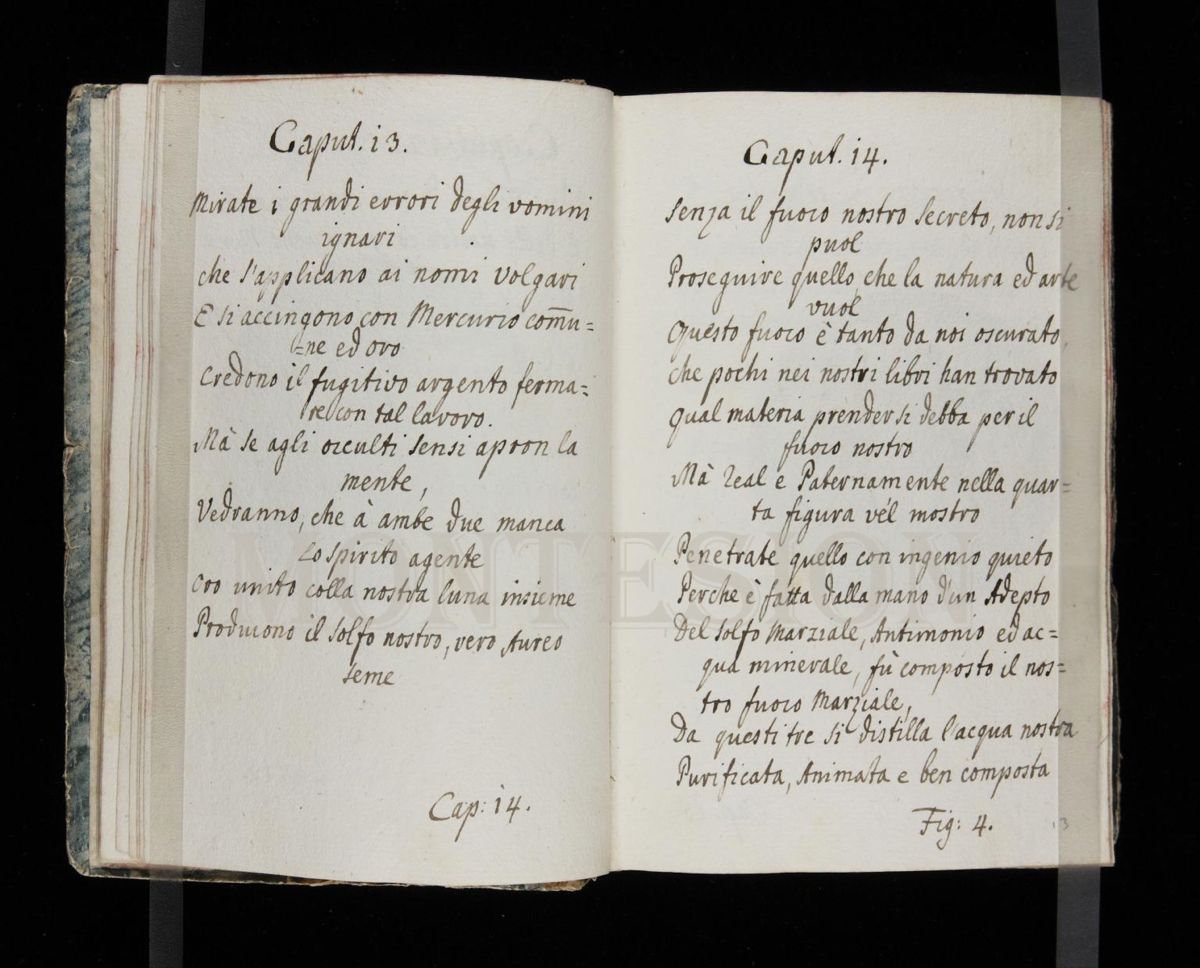 Caput. 13.
Mirate i grandi errori degli vomini
ignari
che s'applicano ai nomi volgari
E si accingono con Mercurio com̅u=
=ne ed oro
Credono il fugitivo argento ferma=
re con tal lavoro.
Mà se agli occulti sensi apron la
mente,
Vedranno, che à ambe due manca
Lo spirito agente
Cio unito colla nostra luna insieme
Producono il solfo nostro, vero Aureo
seme
Cap: 14.
Caput. 14.
Senza il fuoco nostro secreto, non si
puol
Proseguire quello, che la natura ed arte
vuol
Questo fuoco è tanto da noi oscurato,
che pochi nei nostri libri han trovato
qual materia prendersi debba per il
fuoco nostro
Mà real e Paternamente nella quar=
ta figura vel mostro
Penetrate quello con ingenio quieto
Perche è fatta dalla mano d'un Adepto
Del solfo Marziale, Antimonio ed ac=
qua minerale, fù composto il nos=
tro fuoco Marziale,
Da questi tre si distilla l'acqua nostra
Purificata, Animata e ben composta
Fig: 4.
13